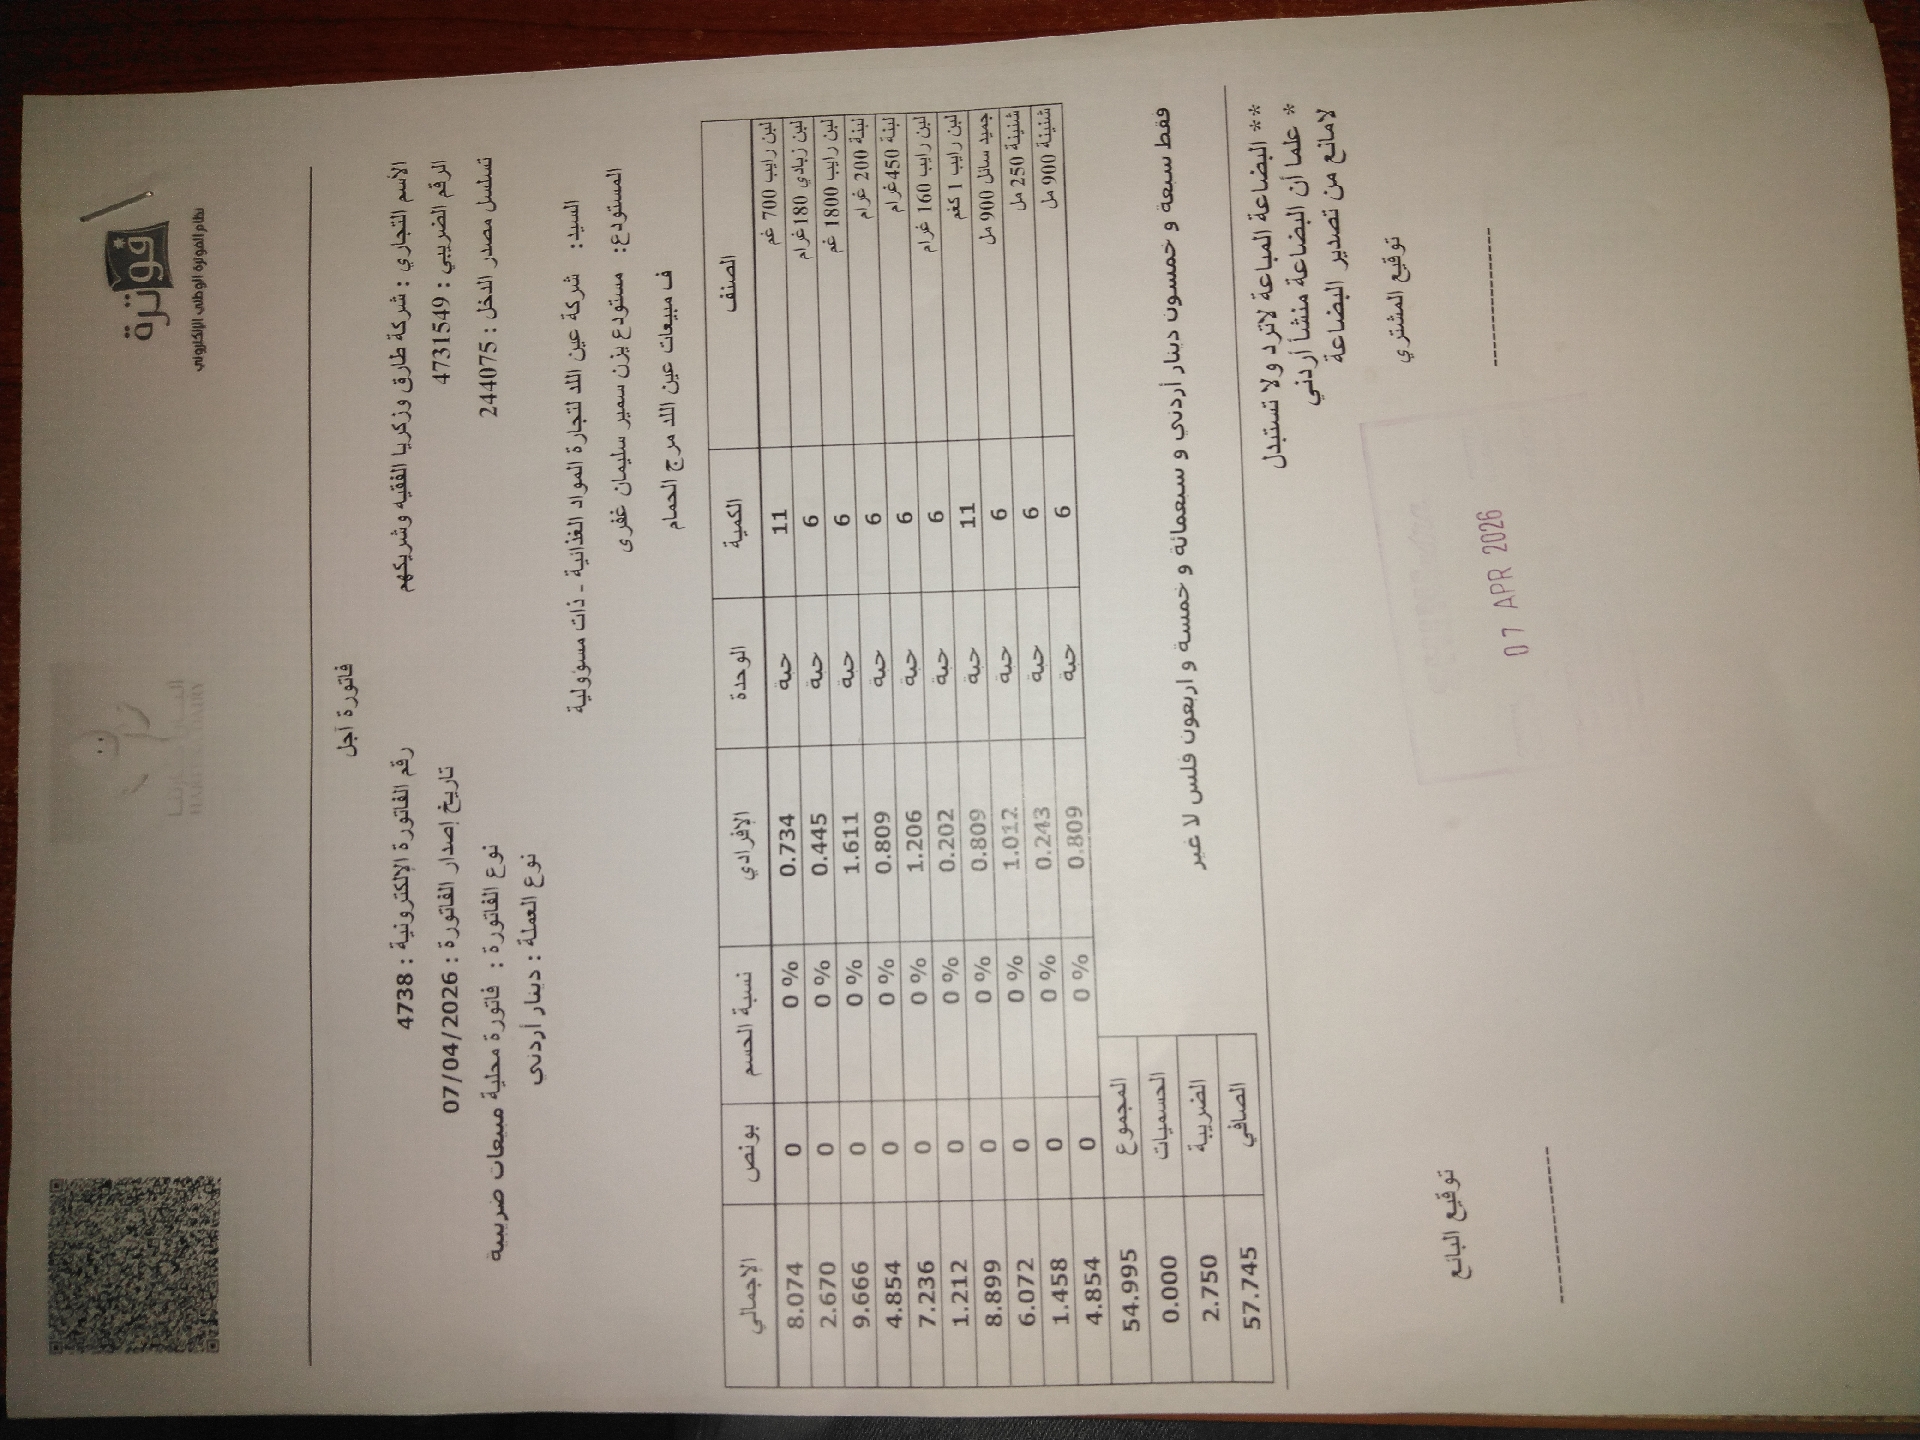 فوترة
نظام الفوترة الوطني الإلكتروني
فاتورة آجل
الأسم التجاري : شركة طارق وزكريا الفقيه وشريكهم
رقم الفاتورة الإلكترونية : 4738
الرقم الضريبي : 4731549
تاريخ إصدار الفاتورة : 07/04/2026
تسلسل مصدر الدخل : 244075
نوع الفاتورة : فاتورة محلية مبيعات ضريبية
نوع العملة : دينار أردني
السيد: شركة عين اللد لتجارة المواد الغذائية - ذات مسؤولية
المستودع: مستودع يزن سمير سليمان غفرى
ف مبيعات عين اللد مرج الحمام
الصنف الكمية الوحدة الإفرادي نسبة الحسم بونص الاجمالي
لبن رايب 700 غم 11 حبة 0.734 0 % 0 8.074
لبن زبادي 180 غرام 6 حبة 0.445 0 % 0 2.670
لبن رايب 1800 غم 6 حبة 1.611 0 % 0 9.666
لبنة 200 غرام 6 حبة 0.809 0 % 0 4.854
لبنة 450 غرام 6 حبة 1.206 0 % 0 7.236
لبن رايب 160 غرام 6 حبة 0.202 0 % 0 1.212
لبن رايب 1 كغم 11 حبة 0.809 0 % 0 8.899
جميد سائل 900 مل 6 حبة 1.012 0 % 0 6.072
شنينة 250 مل 6 حبة 0.243 0 % 0 1.458
شنينة 900 مل 6 حبة 0.809 0 % 0 4.854
المجموع 54.995
الحسميات 0.000
الضريبة 2.750
الصافي 57.745
فقط سبعة و خمسون دينار أردني و سبعمائة و خمسة و اربعون فلس لا غير
** البضاعة المباعة لاترد ولا تستبدل
* علما أن البضاعة منشأ أردني
لامانع من تصدير البضاعة
توقيع المشتري
توقيع البائع
07 APR 2026